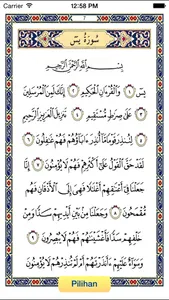 Carrier 12:58 PM
سُورَةُ يسٓ
بِسْمِ اللَّهِ الرَّحْمَٰنِ الرَّحِيمِ
يسٓ ١ وَالْقُرْءَانِ الْحَكِيمِ ٢ إِنَّكَ لَمِنَ الْمُرْسَلِينَ
٣ عَلَىٰ صِرَاطٍ مُّسْتَقِيمٍ ٤ تَنزِيلَ الْعَزِيزِ الرَّحِيمِ
٥ لِتُنذِرَ قَوْمًا مَّا أُنذِرَ ءَابَاؤُهُمْ فَهُمْ غَافِلُونَ ٦
لَقَدْ حَقَّ الْقَوْلُ عَلَىٰ أَكْثَرِهِمْ فَهُمْ لَا يُؤْمِنُونَ ٧ إِنَّا
جَعَلْنَا فِي أَعْنَاقِهِمْ أَغْلَالًا فَهِيَ إِلَى الْأَذْقَانِ فَهُم
مُّقْمَحُونَ ٨ وَجَعَلْنَا مِنْ بَيْنِ أَيْدِيهِمْ سَدًّا وَمِنْ
خَلْفِهِمْ سَدًّا فَأَغْشَيْنَاهُمْ فَهُمْ لَا يُبْصِرُونَ ٩
وَسَوَاءٌ عَلَيْهِمْ ءَأَنذَرْتَهُمْ أَمْ لَمْ تُنذِرْهُمْ لَا يُؤْمِنُونَ
Pilihan